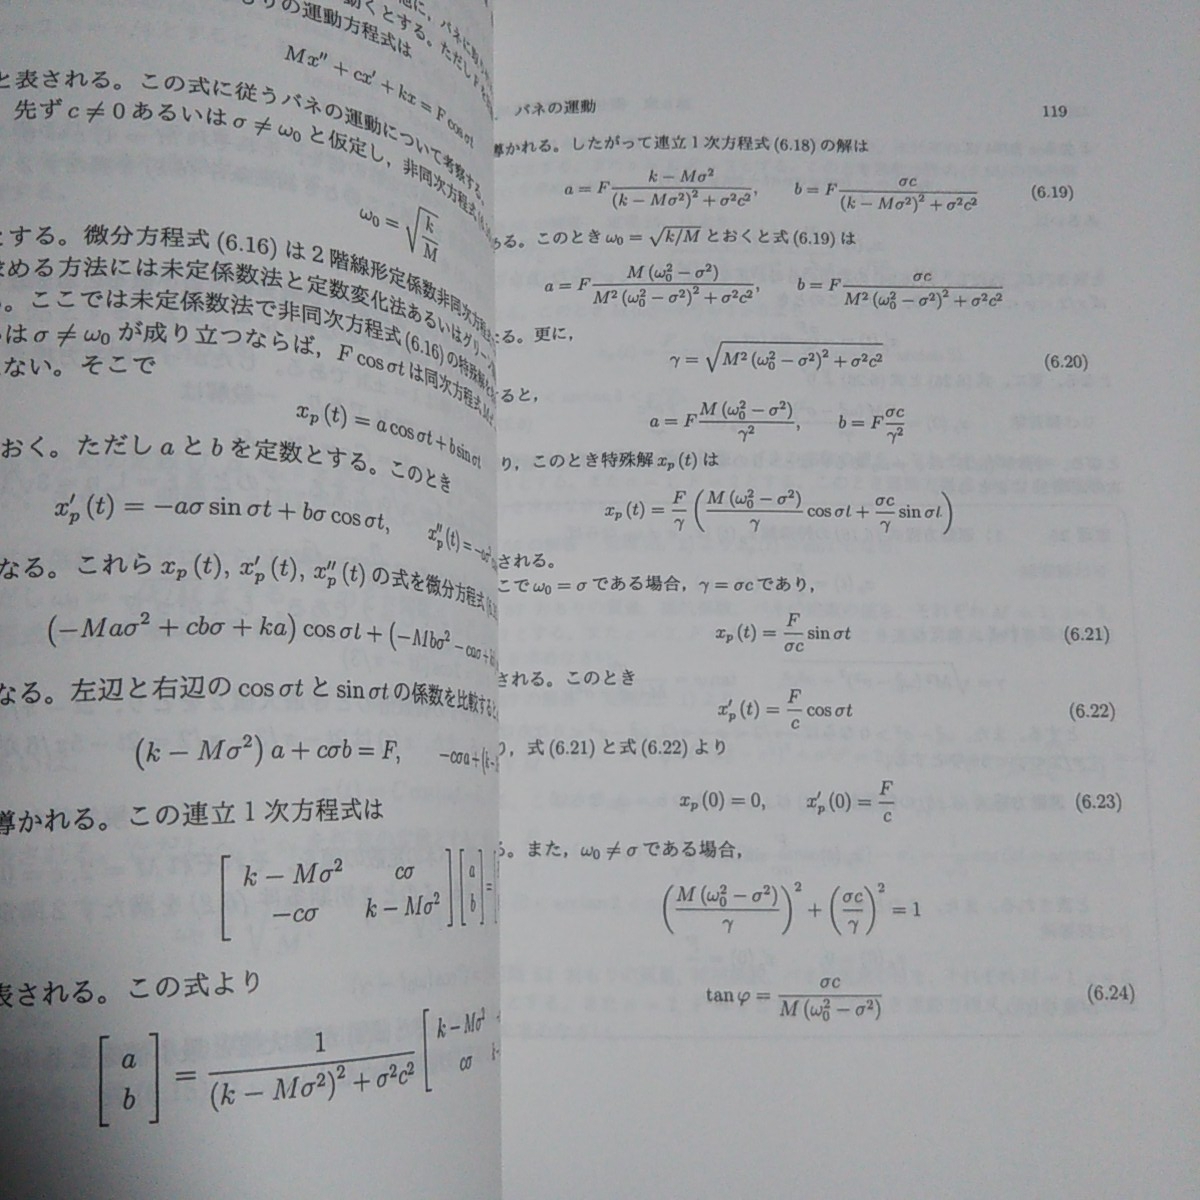 りの運動方程式は
Mx'' + cx' + kx = F cos σt
と表される。この式に従うバネの運動について考察する。
先ず c ≠ 0 あるいは σ ≠ ω₀ と仮定し，非同次方程式
ω₀ = √(k/M)
とする。微分方程式 (6.16) は 2 階線形定係数非同次方程式
求める方法には未定係数法と定数変化法あるいはグリーン
。ここでは未定係数法で非同次方程式 (6.16) の特殊解
は σ ≠ ω₀ が成り立つならば，F cos σt は同次方程式
ない。そこで
x_p (t) = a cos σt + b sin σt
おく。ただし a と b を定数とする。このとき
x'_p (t) = −aσ sin σt + bσ cos σt,  x''_p (t) = −aσ²
なる。これら x_p (t), x'_p (t), x''_p (t) の式を微分方程式
(−Maσ² + cbσ + ka) cos σt + (−Mbσ² − caσ +
なる。左辺と右辺の cos σt と sin σt の係数を比較すると
(k − Mσ²) a + cσb = F,  −cσa + (k −
導かれる。この連立 1 次方程式は
[ k − Mσ²  cσ ] [ a ] =
[ −cσ  k − Mσ² ] [ b ]
表される。この式より
[ a ; b ] = 1/((k − Mσ²)² + σ²c²) [ k − Mσ² ; cσ
バネの運動  119
導かれる。したがって連立 1 次方程式 (6.18) の解は
a = F (k − Mσ²)/((k − Mσ²)² + σ²c²),  b = F σc/((k − Mσ²)² + σ²c²)  (6.19)
ある。このとき ω₀ = √(k/M) とおくと式 (6.19) は
a = F M (ω₀² − σ²)/(M² (ω₀² − σ²)² + σ²c²),  b = F σc/(M² (ω₀² − σ²)² + σ²c²)
る。更に，
γ = √(M² (ω₀² − σ²)² + σ²c²)  (6.20)
ると，
a = F M (ω₀² − σ²)/γ²,  b = F σc/γ²
り，このとき特殊解 x_p (t) は
x_p (t) = F/γ ( M (ω₀² − σ²)/γ cos σt + σc/γ sin σt )
される。
こで ω₀ = σ である場合，γ = σc であり，
x_p (t) = F/σc sin σt  (6.21)
される。このとき
x'_p (t) = F/c cos σt  (6.22)
り，式 (6.21) と式 (6.22) より
x_p (0) = 0,  x'_p (0) = F/c  (6.23)
る。また，ω₀ ≠ σ である場合，
( M (ω₀² − σ²)/γ )² + ( σc/γ )² = 1
tan φ = σc/(M (ω₀² − σ²))  (6.24)